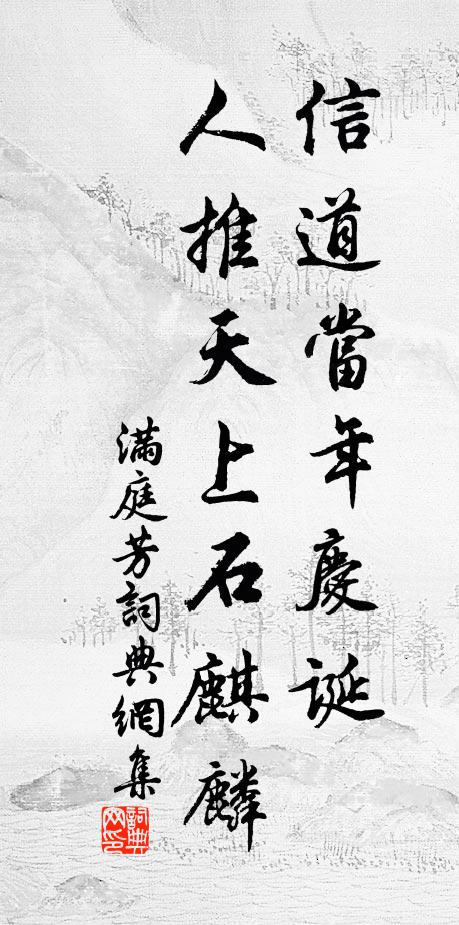 信道當年慶誕
人推天上石麒麟
滿庭芳詞典網集
詞典
网印